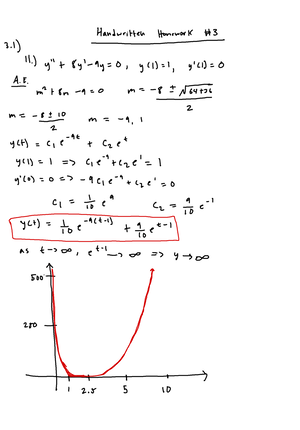 Handwritten Homework #3
3.1)
11.) y'' + 8y' - 9y = 0, y(1) = 1, y'(1) = 0
A.E.
m² + 8m - 9 = 0 m = -8 ± √64+36 / 2
m = -8 ± 10 / 2 m = -9, 1
y(t) = c₁ e^-9t + c₂ e^t
y(1) = 1 => c₁ e^-9 + c₂ e^1 = 1
y'(1) = 0 => -9c₁ e^-9 + c₂ e^1 = 0
c₁ = 1/10 e^9 c₂ = 9/10 e^-1
y(t) = 1/10 e^-9(t-1) + 9/10 e^t-1
as t → ∞, e^t-1 → ∞ => y → ∞
500
250
1 2.5 5 10